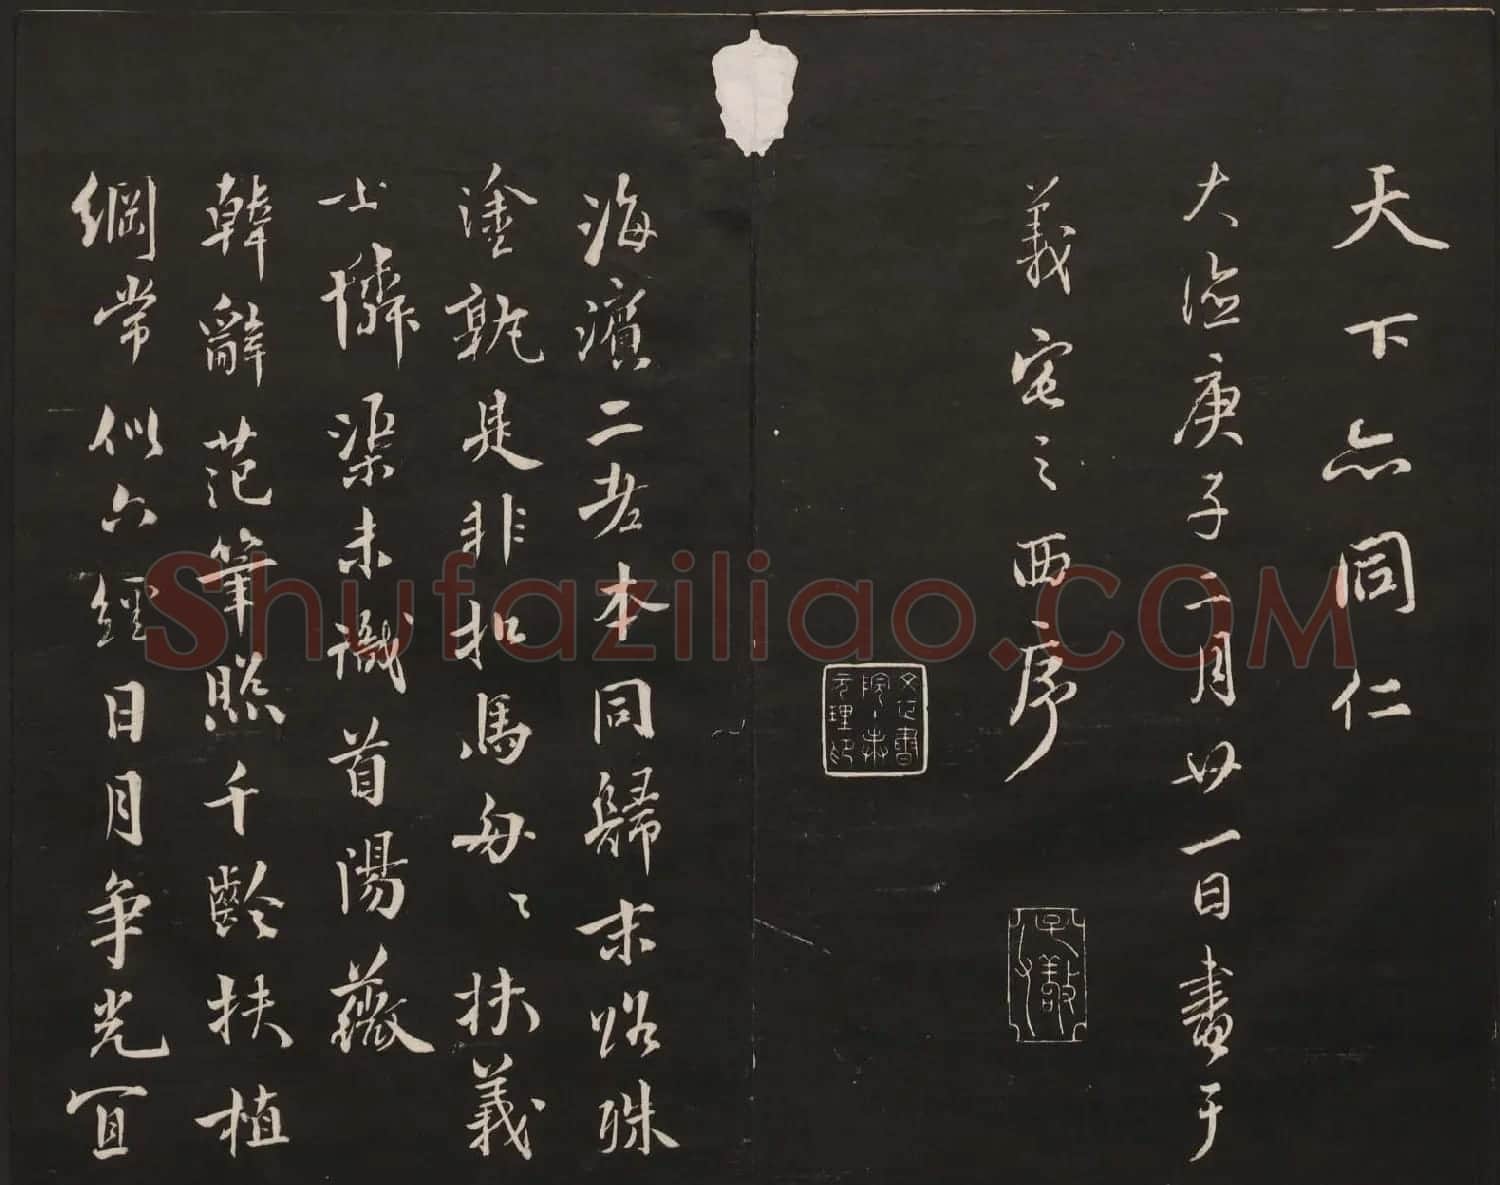 天下亦同仁
大德庚子二月廿一日書于
義宅之西序
文正書院主奉元理印
海濱二老本同歸末路殊
塗孰是非扣馬匆々扶義
士憐渠未識首陽薇
韓辭范筆照千齡扶植
綱常似六經日月争光宜
Shufaziliao.COM